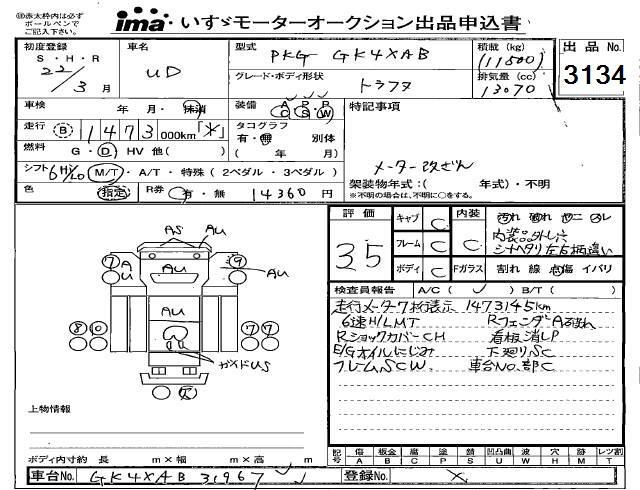 ㊟赤太枠内は必ず
ボールペンで
ご記入下さい。
ima いすゞモーターオークション出品申込書
初度登録
S・H・R
22/3 月
車名
UD
型式
PKG GK4XAB
グレード・ボディ形状
トラクタ
積載(kg)
(11500)
排気量(cc)
13070
出品 No.
3134
車検 年 月・抹消
装備 A P・P
C S W
特記事項
メーター改ざん
走行 B 1473 000km「*」
タコグラフ
有・無 別体
( 年 月)
燃料 G・D HV 他( )
シフト 6 Hi/Lo M/T・A/T・特殊(2ペダル・3ペダル)
架装物年式:( 年式)・不明
※不明の場合は、不明に○をする。
色 指定 R券 有・無 14360 円
評価
35
キャブ C
フレーム C
ボディ C
内装
C
Fガラス
汚れ 破れ ヤニ スレ
内装品外し穴
シートヘタリ 左右柄違い
割れ 線 点傷 イバリ
検査員報告 A/C( ✓ ) B/T( )
走行メーター7桁表示 1473145km
6速H/LMT RフェンダーA割れ
RショックカバーCH 看板消しP
E/Gオイルにじみ 下廻りSC
フレームSCW 車台No.部C
AS AU
⑦ A U
AU
⑨
AU
AU
⑧ ⑩
⑦ ⑦
ガメドUS
欠
上物情報
ボディ内寸約 長 m×幅 m×高 m
記号 傷 A 板金 B 腐 C 塗 P 錆 S 凹凸曲 U 波 W 穴 H 跡 M レツ割 T
車台No. GK4XAB 31967
登録No. ×